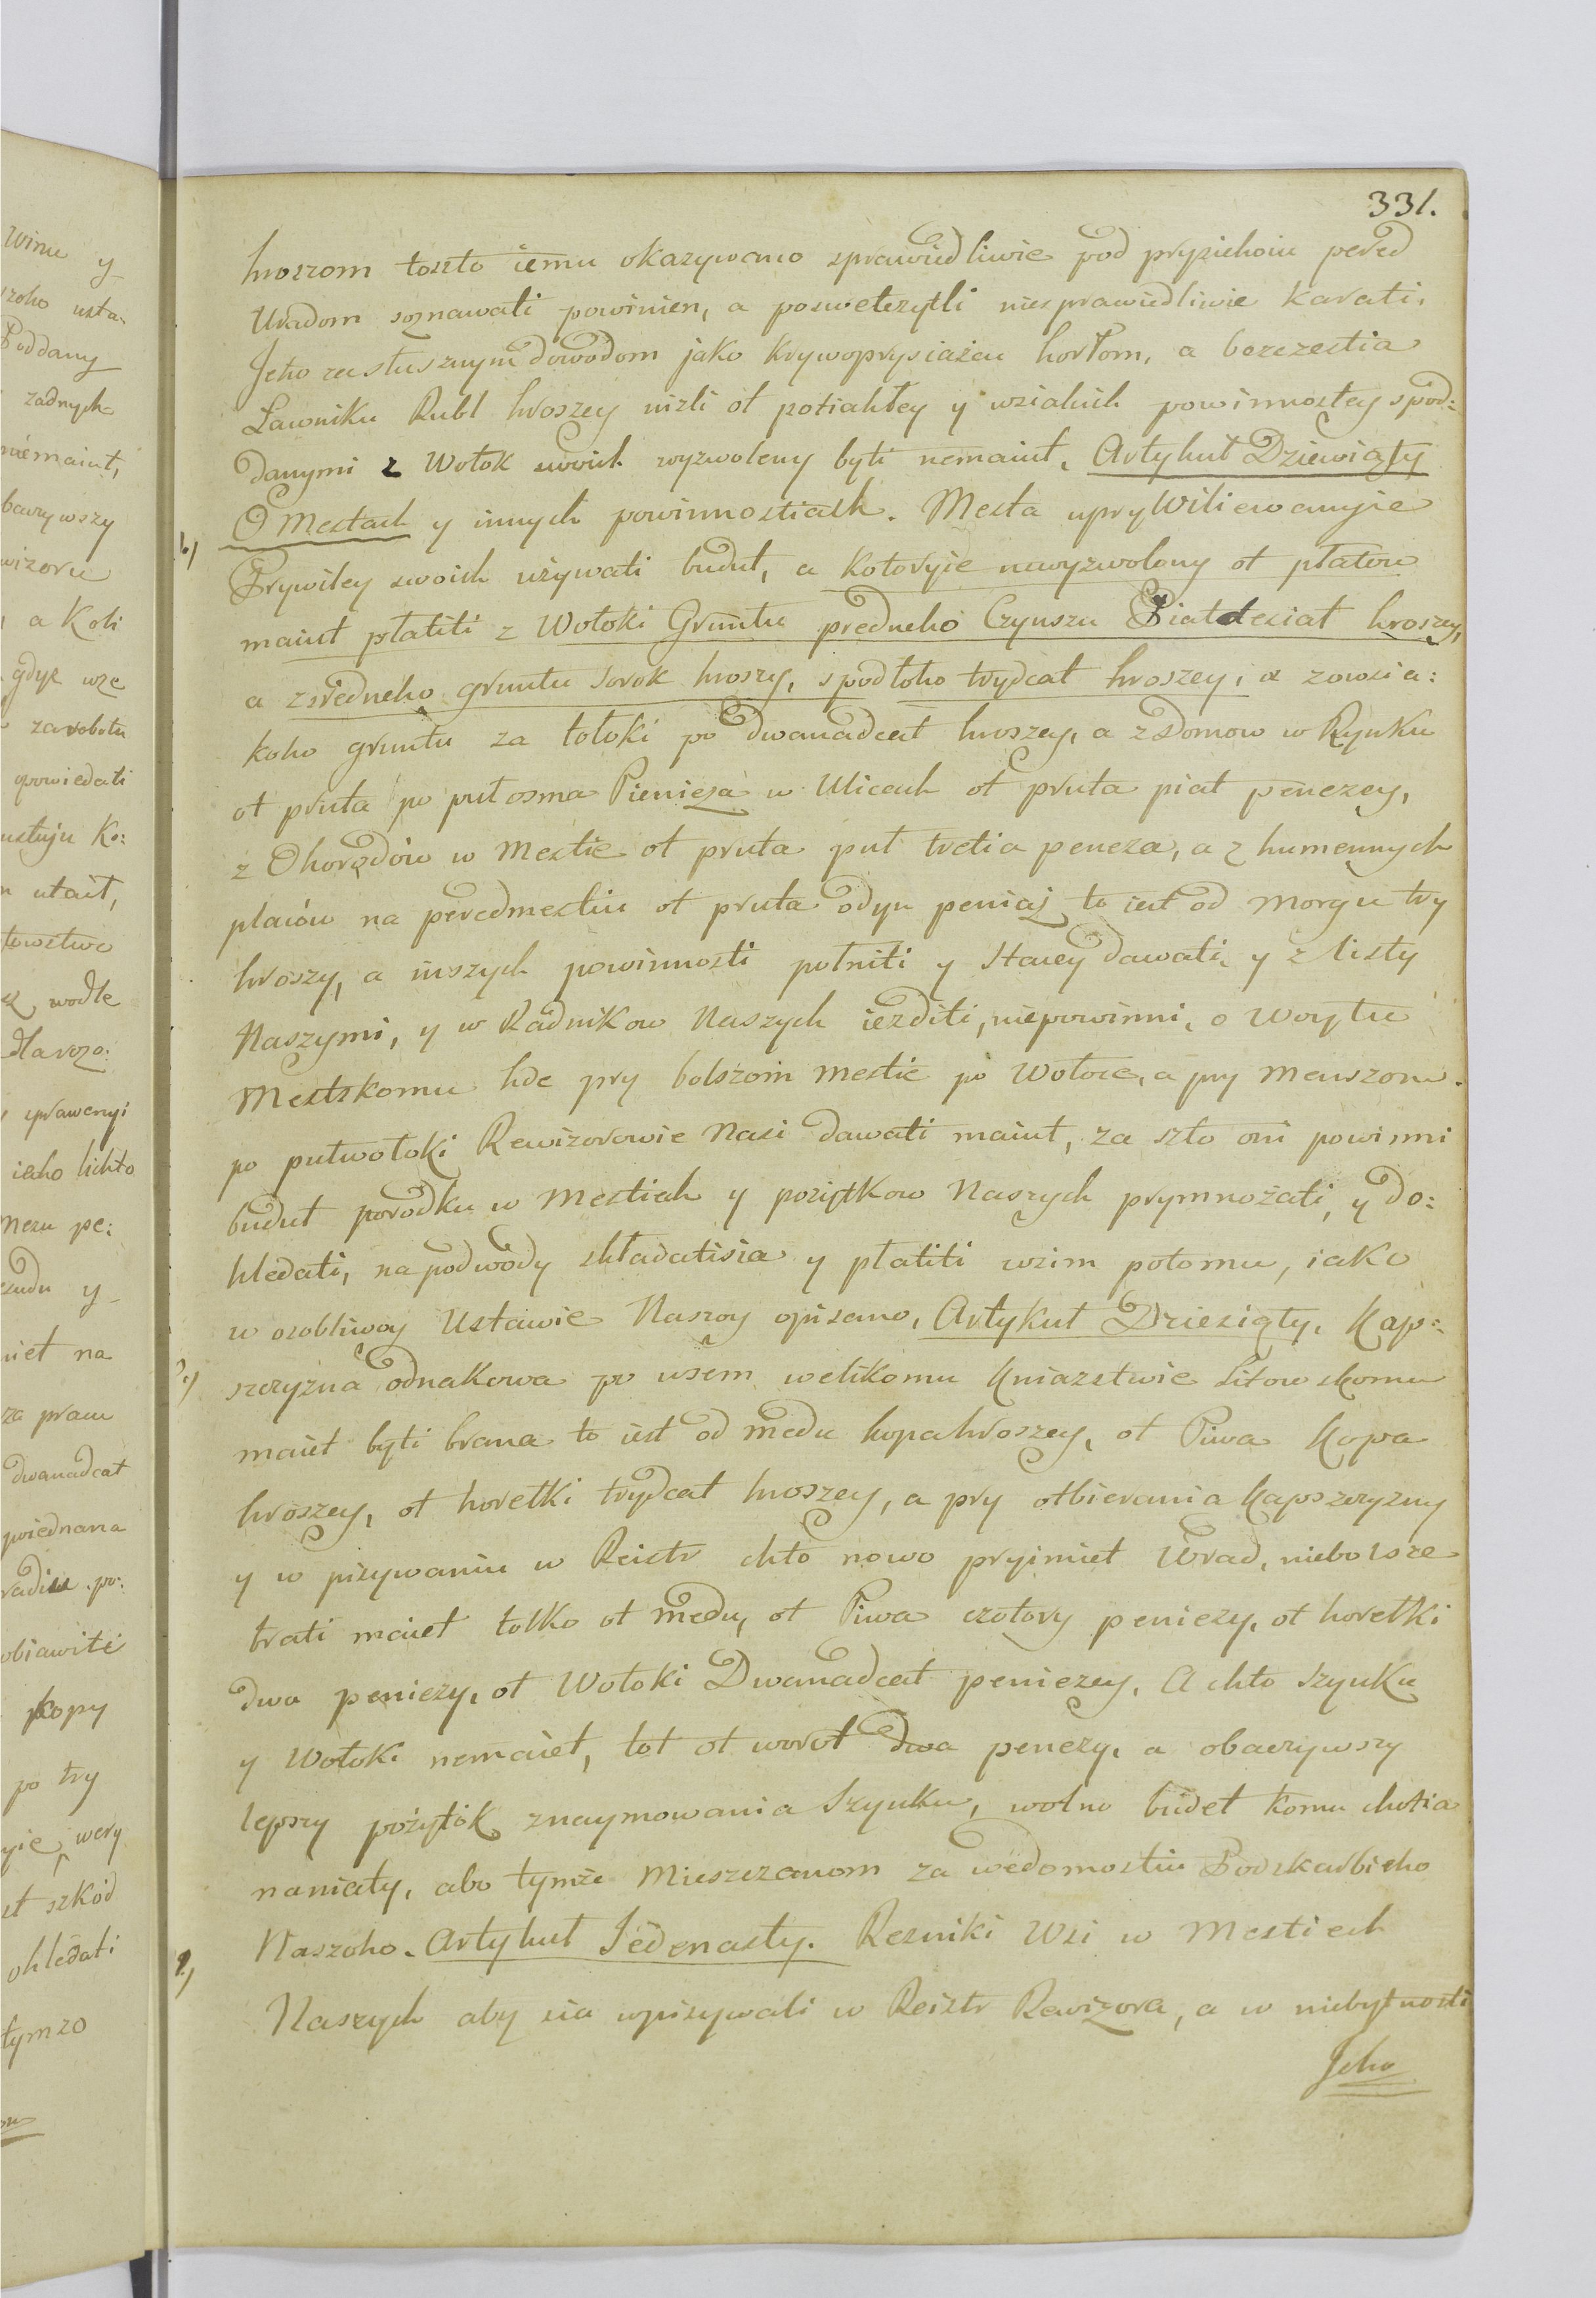 331.
hroszom toszto iemu okazywano sprawiedliwie pod prysiehoiu pered
Uradom soznawati powinien, a poswetczytli niesprawiedliwie karati.
Jeho za słusznym dowodom jako krywoprysiażcu horłom, a bezczestia
Ławniku Rubl hroszey nizli ot potiahłey y wsiakich powinnostey spod:
danymi z Wołok swoich wyzwoleny byti nemaiut. Artykuł Dziewiąty
O Mestach y innych powinnostiach. Mesta upryWiliewanyie
Prywiley swoich używati budut, a kotoryie newyzwolony ot płatow
maiut płatiti z Wołoki Gruntu predneho Czynszu Piatdesiat hroszey,
a z sredneho gruntu sorok hroszy, s podłoho trydcat hroszey, a zowsia:
koho gruntu za tołoki po dwanadcat hroszey, a z Domow w Rynku
ot pruta po puł osma Pienięza w Ulicach ot pruta piat penezey,
z Ohorodów w Mestie ot pruta puł tretia peneza, a z humennych
placów na peredmestiu ot pruta odyn peniąz to iest od Morgu try
hroszy, a inszych powinnosti pełniti y Stacey dawati, y z listy
Naszymi, y w Radnikow Naszych iezditi, niepowinni, o Woytu
Mestskomu hde pry bolszom mestie po Wołoce, a pry Menszom.
po pułwołoki Rewizorowie Nasi dawati maiut, za szto oni powinni
budut porodku w Mestiech y pożytkow Naszych prymnożati, y do:
hledati, na podwody składatisia y płatiti wsim potomu, iako
w osobliwoy Ustawie Naszoy opisano, Artykuł Dziesiąty. Kap:
szczyzna odnakowa po wsem welikomu Kniazstwie Litowskomu
maiet byti brana to iest od medu kopa hroszey, ot Piwa Kopa
hroszey, ot horełki trydcat hroszey, a pry otbierania Kapszczyzny
y w pisywaniu w Reistr chto nowo pryimiet Wrad, niebolsze
brati maiet tolko ot medu, ot Piwa czotyry peniezy, ot horełki
dwa peniezy, ot Wołoki Dwanadcat peniezey. A chto Szynku
y Wołoki nemaiet, tot ot worot dwa penezy, a obaczywszy
lepszy pożytok znaymowania Szynku, wolno budet komu chotia
naniaty, abo tymże Mieszczanom za wedomostiu Podskarbieho
Naszoho. Artykuł Jedenasty. Rezniki Wsi w Mestiech
Naszych aby sia wpisywali w Reistr Rewizora, a w niebytnosti
Jeho